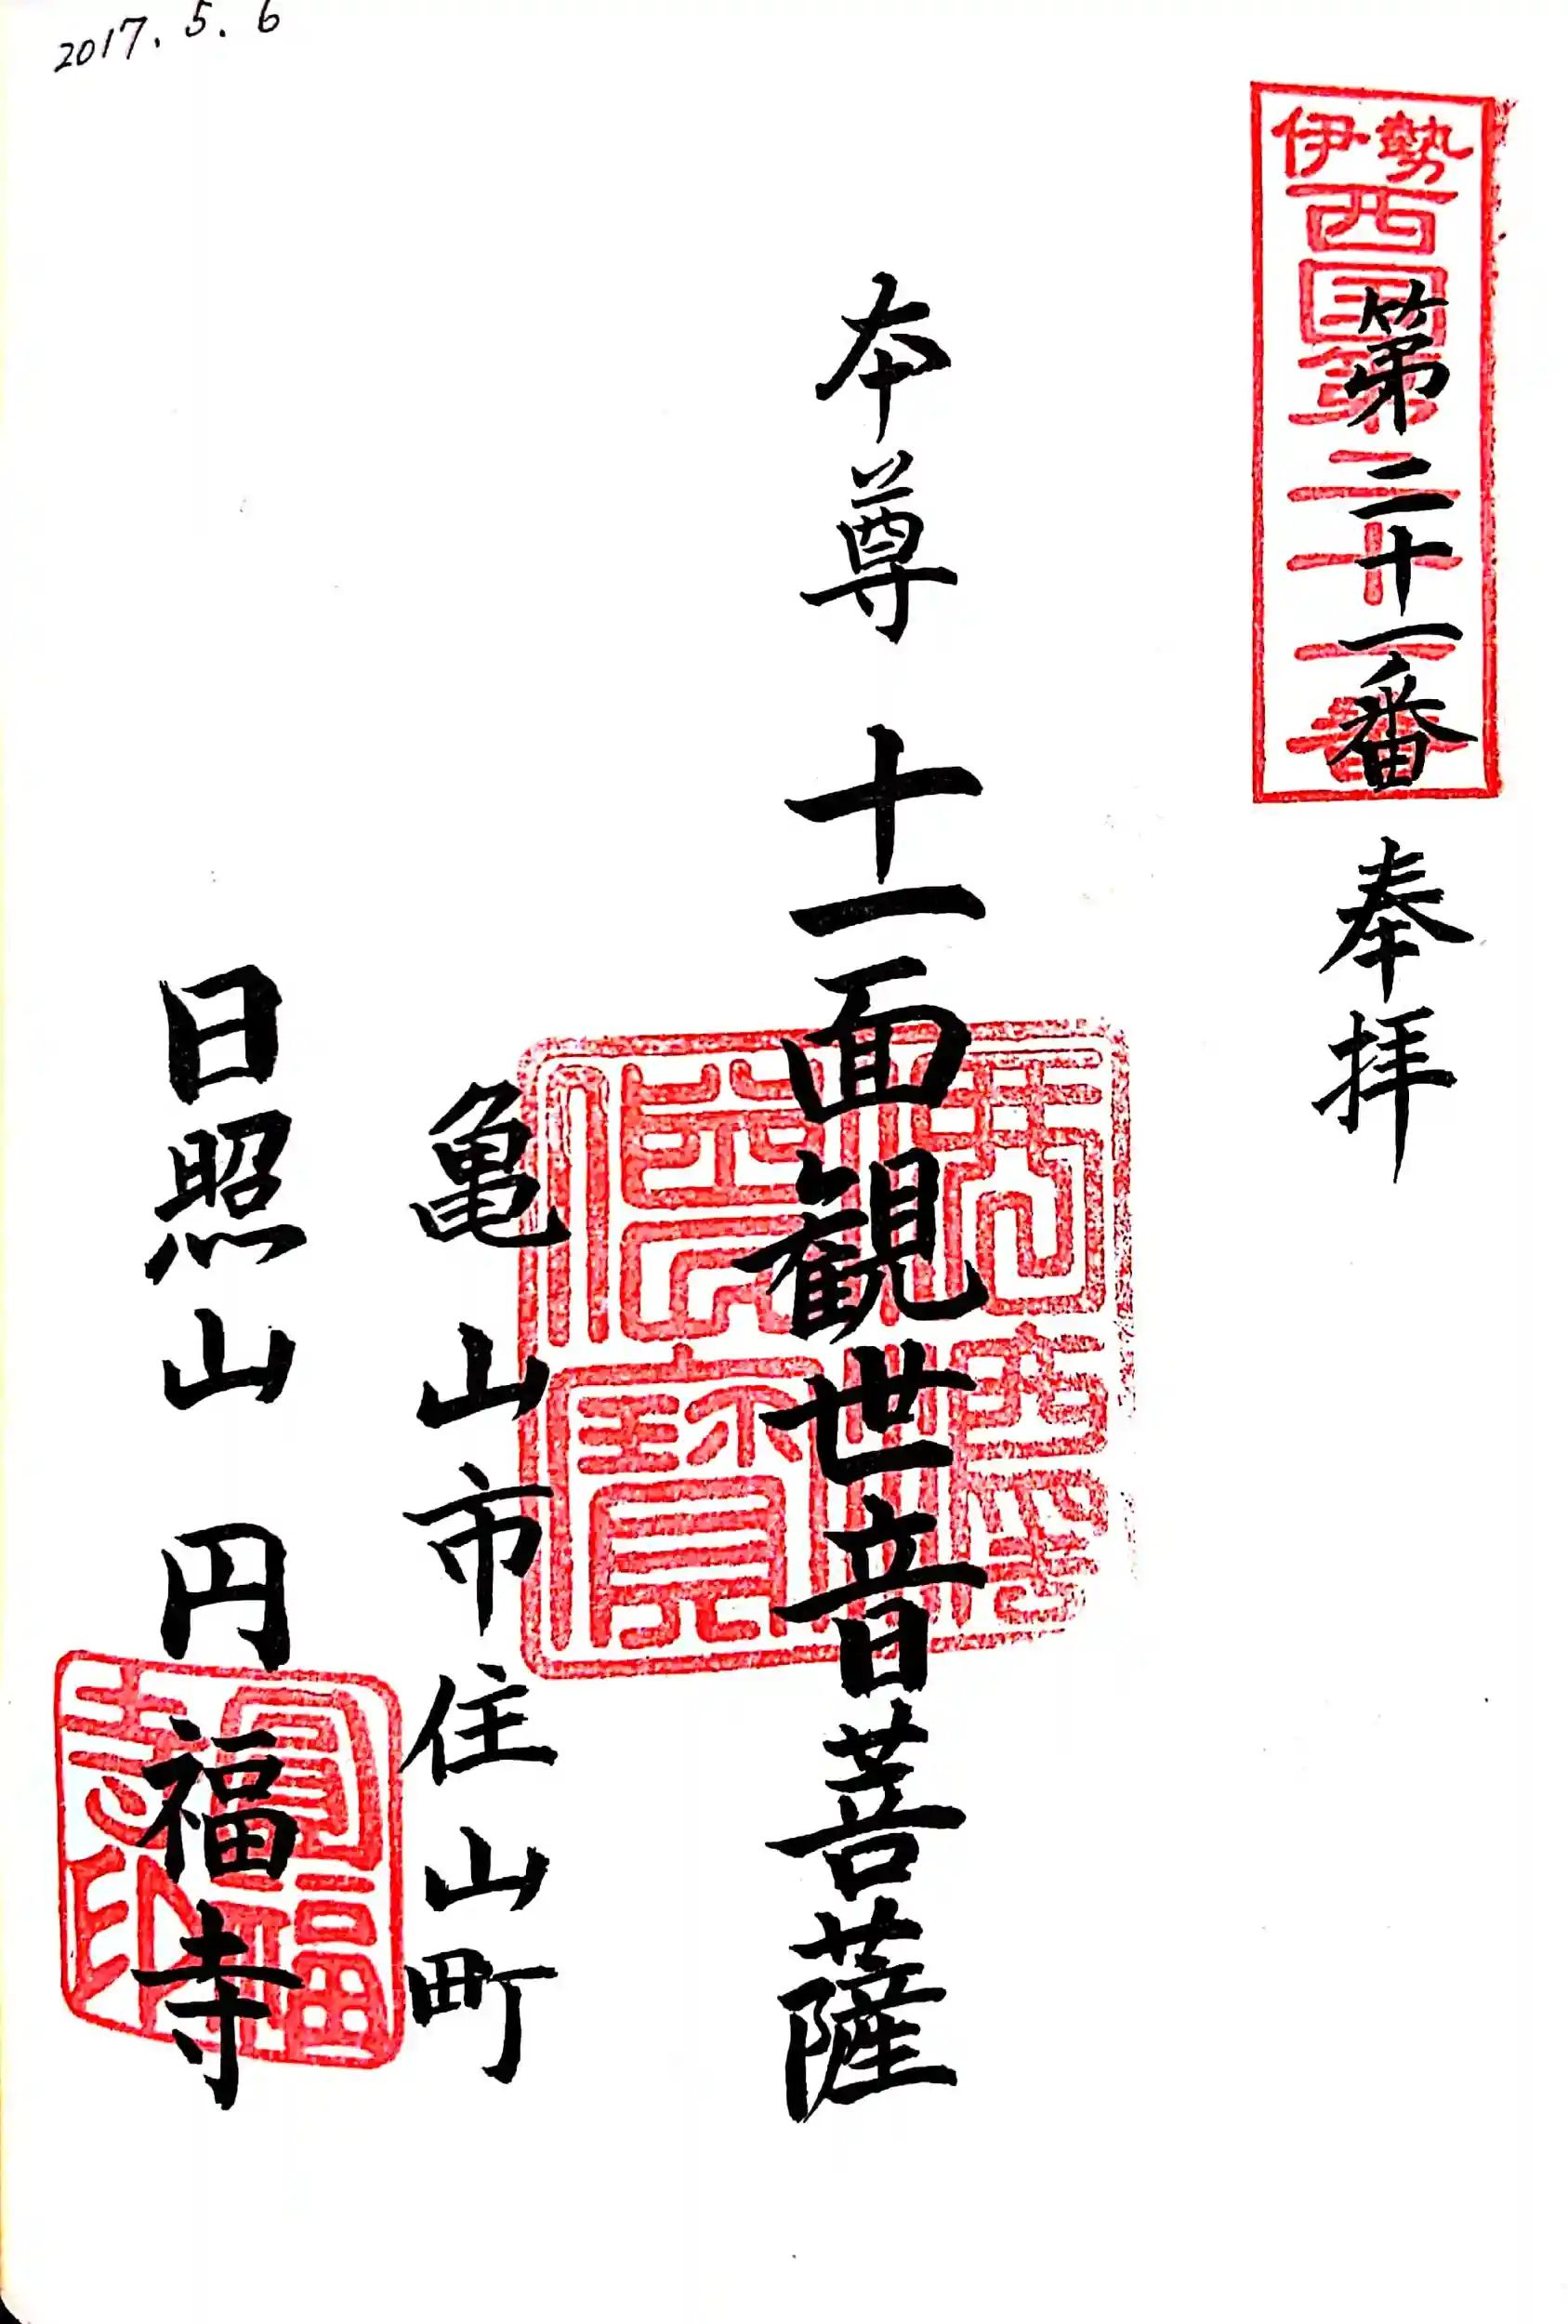 2017.5.6
伊勢西国第二十一番
第二十一番 奉拝
本尊 十一面観世音菩薩
亀山市住山町
日照山 円福寺
圓福寺印